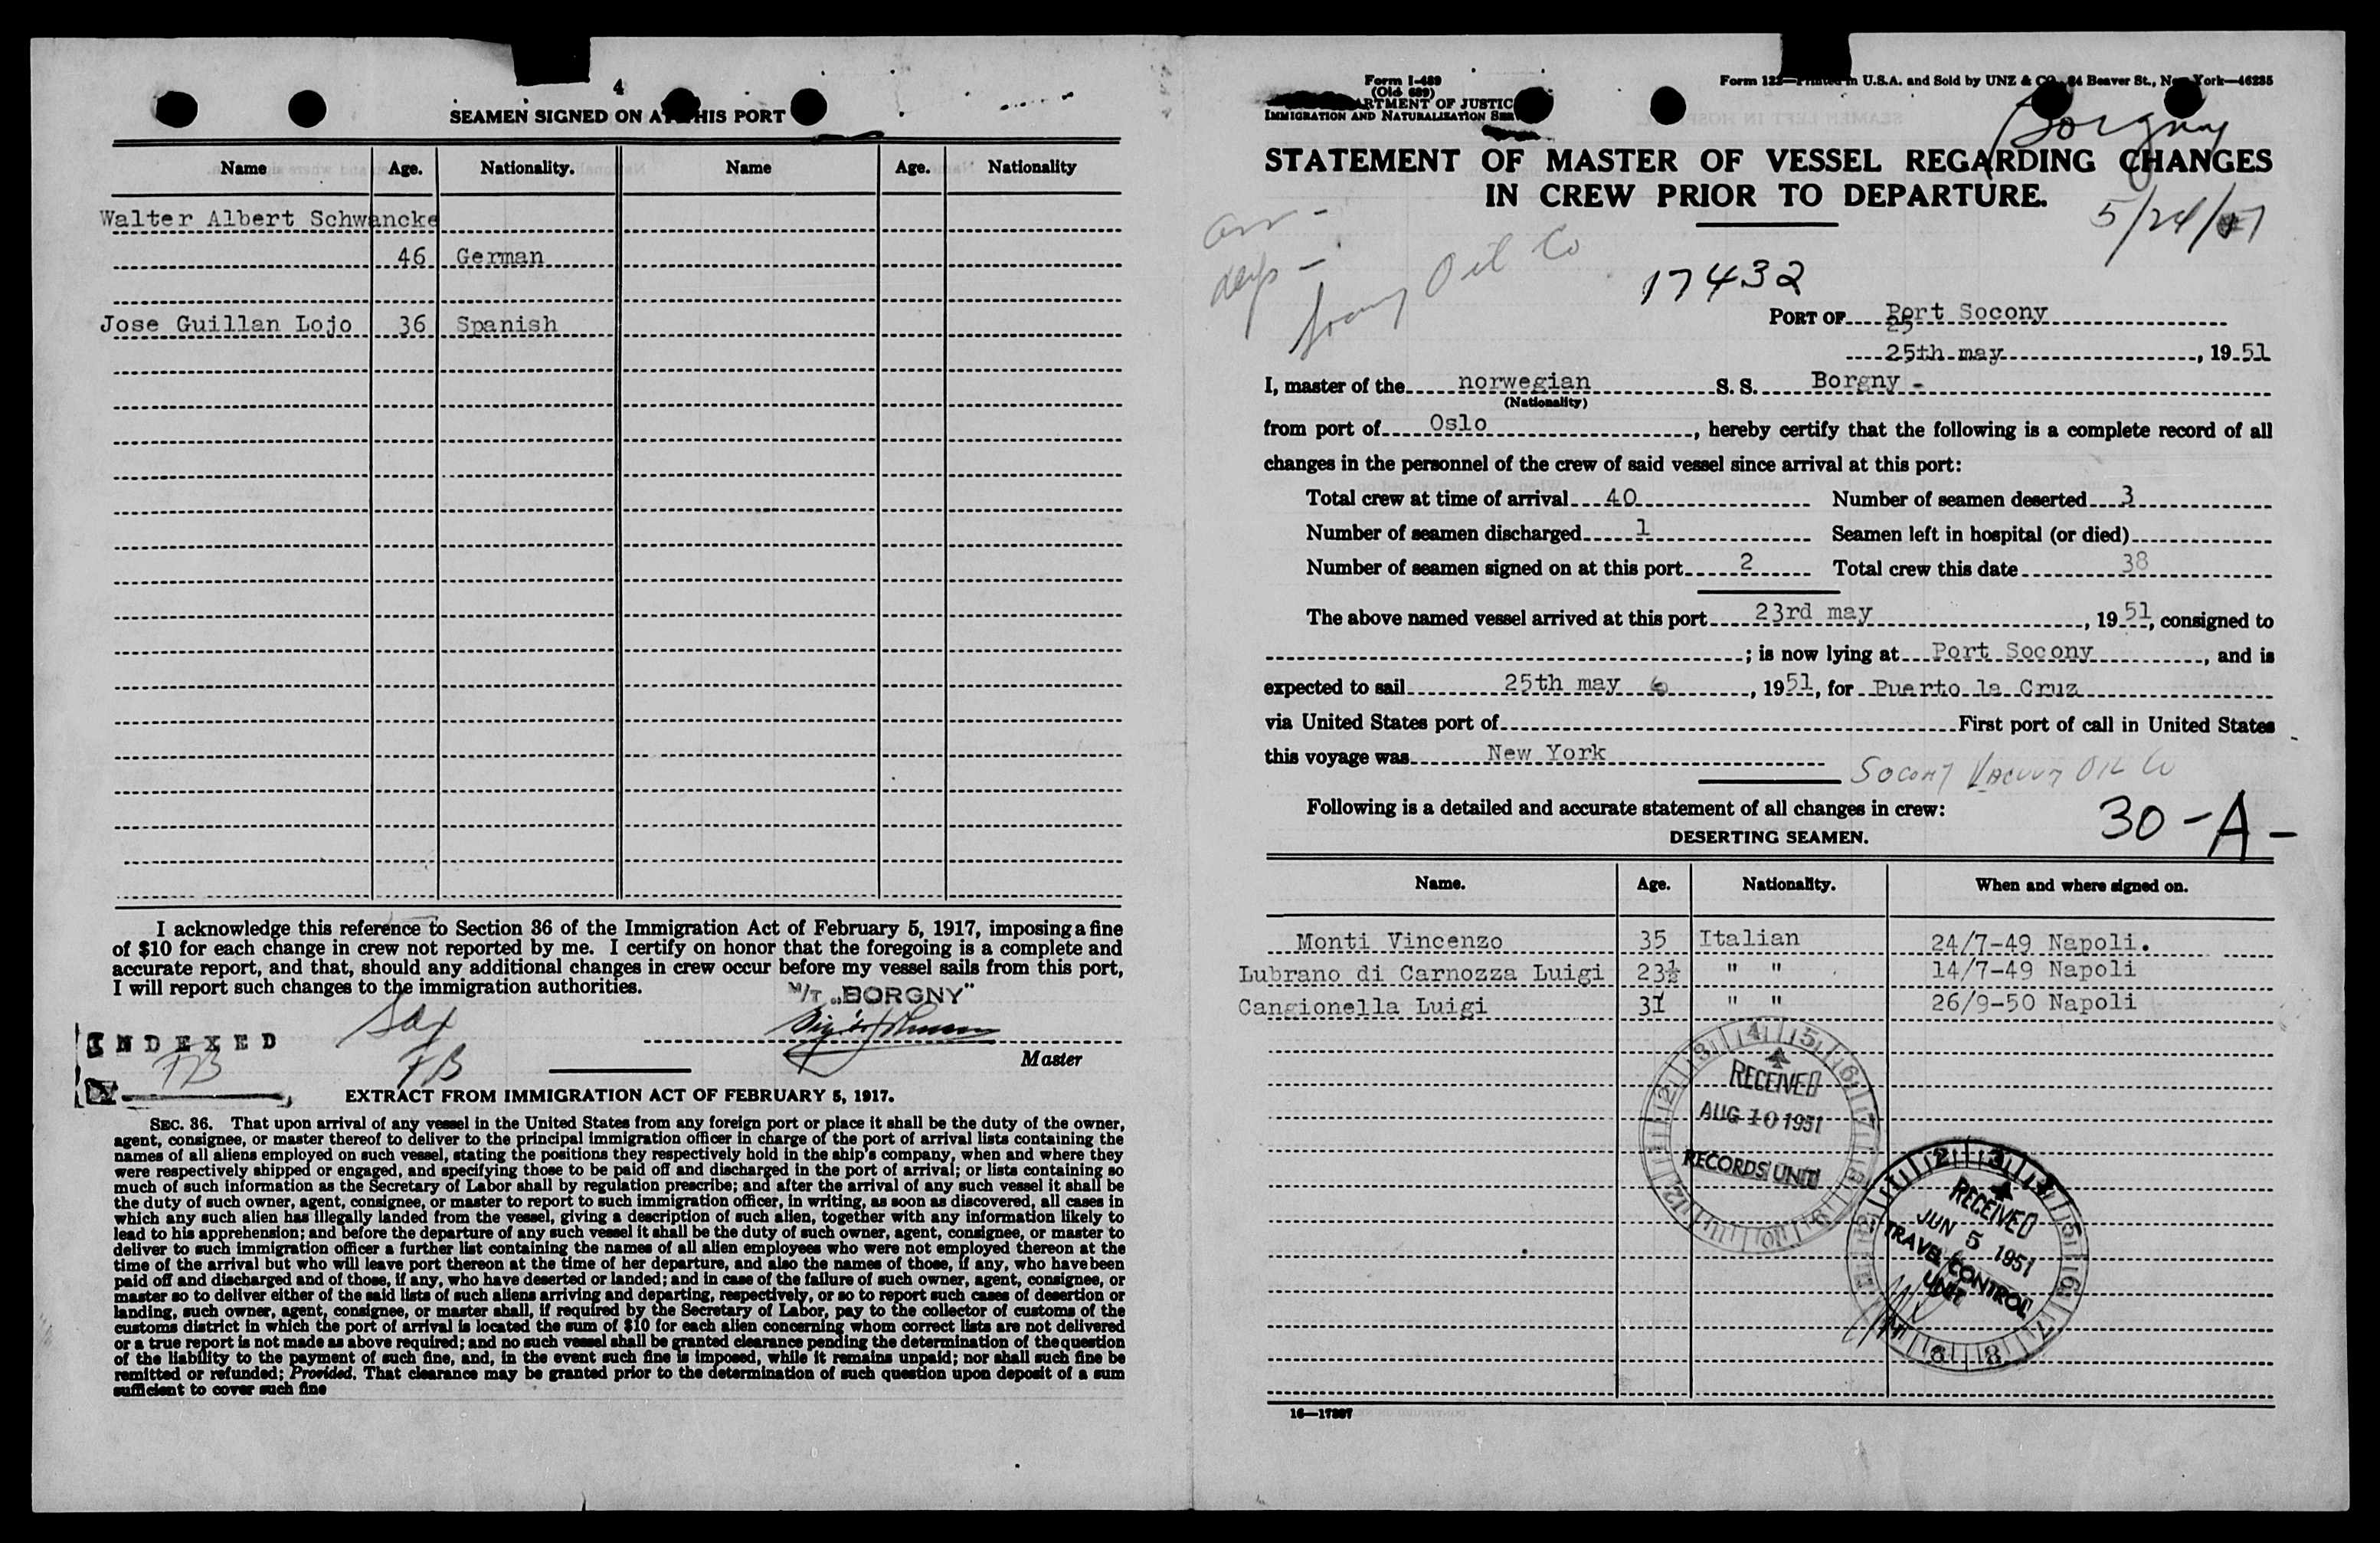 4
SEAMEN SIGNED ON AT THIS PORT
Name Age. Nationality. Name Age. Nationality
Walter Albert Schwancke
46 German
Jose Guillan Lojo 36 Spanish
I acknowledge this reference to Section 36 of the Immigration Act of February 5, 1917, imposing a fine
of $10 for each change in crew not reported by me. I certify on honor that the foregoing is a complete and
accurate report, and that, should any additional changes in crew occur before my vessel sails from this port,
I will report such changes to the immigration authorities.
M/T „BORGNY"
INDEXED
FB
FB
Master
EXTRACT FROM IMMIGRATION ACT OF FEBRUARY 5, 1917.
SEC. 36. That upon arrival of any vessel in the United States from any foreign port or place it shall be the duty of the owner,
agent, consignee, or master thereof to deliver to the principal immigration officer in charge of the port of arrival lists containing the
names of all aliens employed on such vessel, stating the positions they respectively hold in the ship's company, when and where they
were respectively shipped or engaged, and specifying those to be paid off and discharged in the port of arrival; or lists containing so
much of such information as the Secretary of Labor shall by regulation prescribe; and after the arrival of any such vessel it shall be
the duty of such owner, agent, consignee, or master to report to such immigration officer, in writing, as soon as discovered, all cases in
which any such alien has illegally landed from the vessel, giving a description of such alien, together with any information likely to
lead to his apprehension; and before the departure of any such vessel it shall be the duty of such owner, agent, consignee, or master to
deliver to such immigration officer a further list containing the names of all alien employees who were not employed thereon at the
time of the arrival but who will leave port thereon at the time of her departure, and also the names of those, if any, who have been
paid off and discharged and of those, if any, who have deserted or landed; and in case of the failure of such owner, agent, consignee, or
master so to deliver either of the said lists of such aliens arriving and departing, respectively, or so to report such cases of desertion or
landing, such owner, agent, consignee, or master shall, if required by the Secretary of Labor, pay to the collector of customs of the
customs district in which the port of arrival is located the sum of $10 for each alien concerning whom correct lists are not delivered
or a true report is not made as above required; and no such vessel shall be granted clearance pending the determination of the question
of the liability to the payment of such fine, and, in the event such fine is imposed, while it remains unpaid; nor shall such fine be
remitted or refunded; Provided, That clearance may be granted prior to the determination of such question upon deposit of a sum
sufficient to cover such fine
Form I-489
(Old 689)
DEPARTMENT OF JUSTICE
IMMIGRATION AND NATURALIZATION SER
Form 122—Printed in U.S.A. and Sold by UNZ & CO., 24 Beaver St., New York—46235
Borgny
STATEMENT OF MASTER OF VESSEL REGARDING CHANGES
IN CREW PRIOR TO DEPARTURE.
5/24/51
arr -
deps -
Socony Oil Co
17432
PORT OF Port Socony
25
25th may, 1951
I, master of the norwegian S. S. Borgny -
(Nationality)
from port of Oslo, hereby certify that the following is a complete record of all
changes in the personnel of the crew of said vessel since arrival at this port:
Total crew at time of arrival 40 Number of seamen deserted 3
Number of seamen discharged 1 Seamen left in hospital (or died)
Number of seamen signed on at this port 2 Total crew this date 38
The above named vessel arrived at this port 23rd may, 1951, consigned to
; is now lying at Port Socony, and is
expected to sail 25th may, 1951, for Puerto la Cruz
via United States port of First port of call in United States
this voyage was New York
Socony Vacuum Oil Co
Following is a detailed and accurate statement of all changes in crew:
30-A-
DESERTING SEAMEN.
Name. Age. Nationality. When and where signed on.
Monti Vincenzo 35 Italian 24/7-49 Napoli.
Lubrano di Carnozza Luigi 23½ " " 14/7-49 Napoli
Cangionella Luigi 31 " " 26/9-50 Napoli
RECEIVED
AUG 10 1951
RECORDS UNIT
RECEIVED
JUN 5 1951
TRAVEL CONTROL
UNIT
16—17397